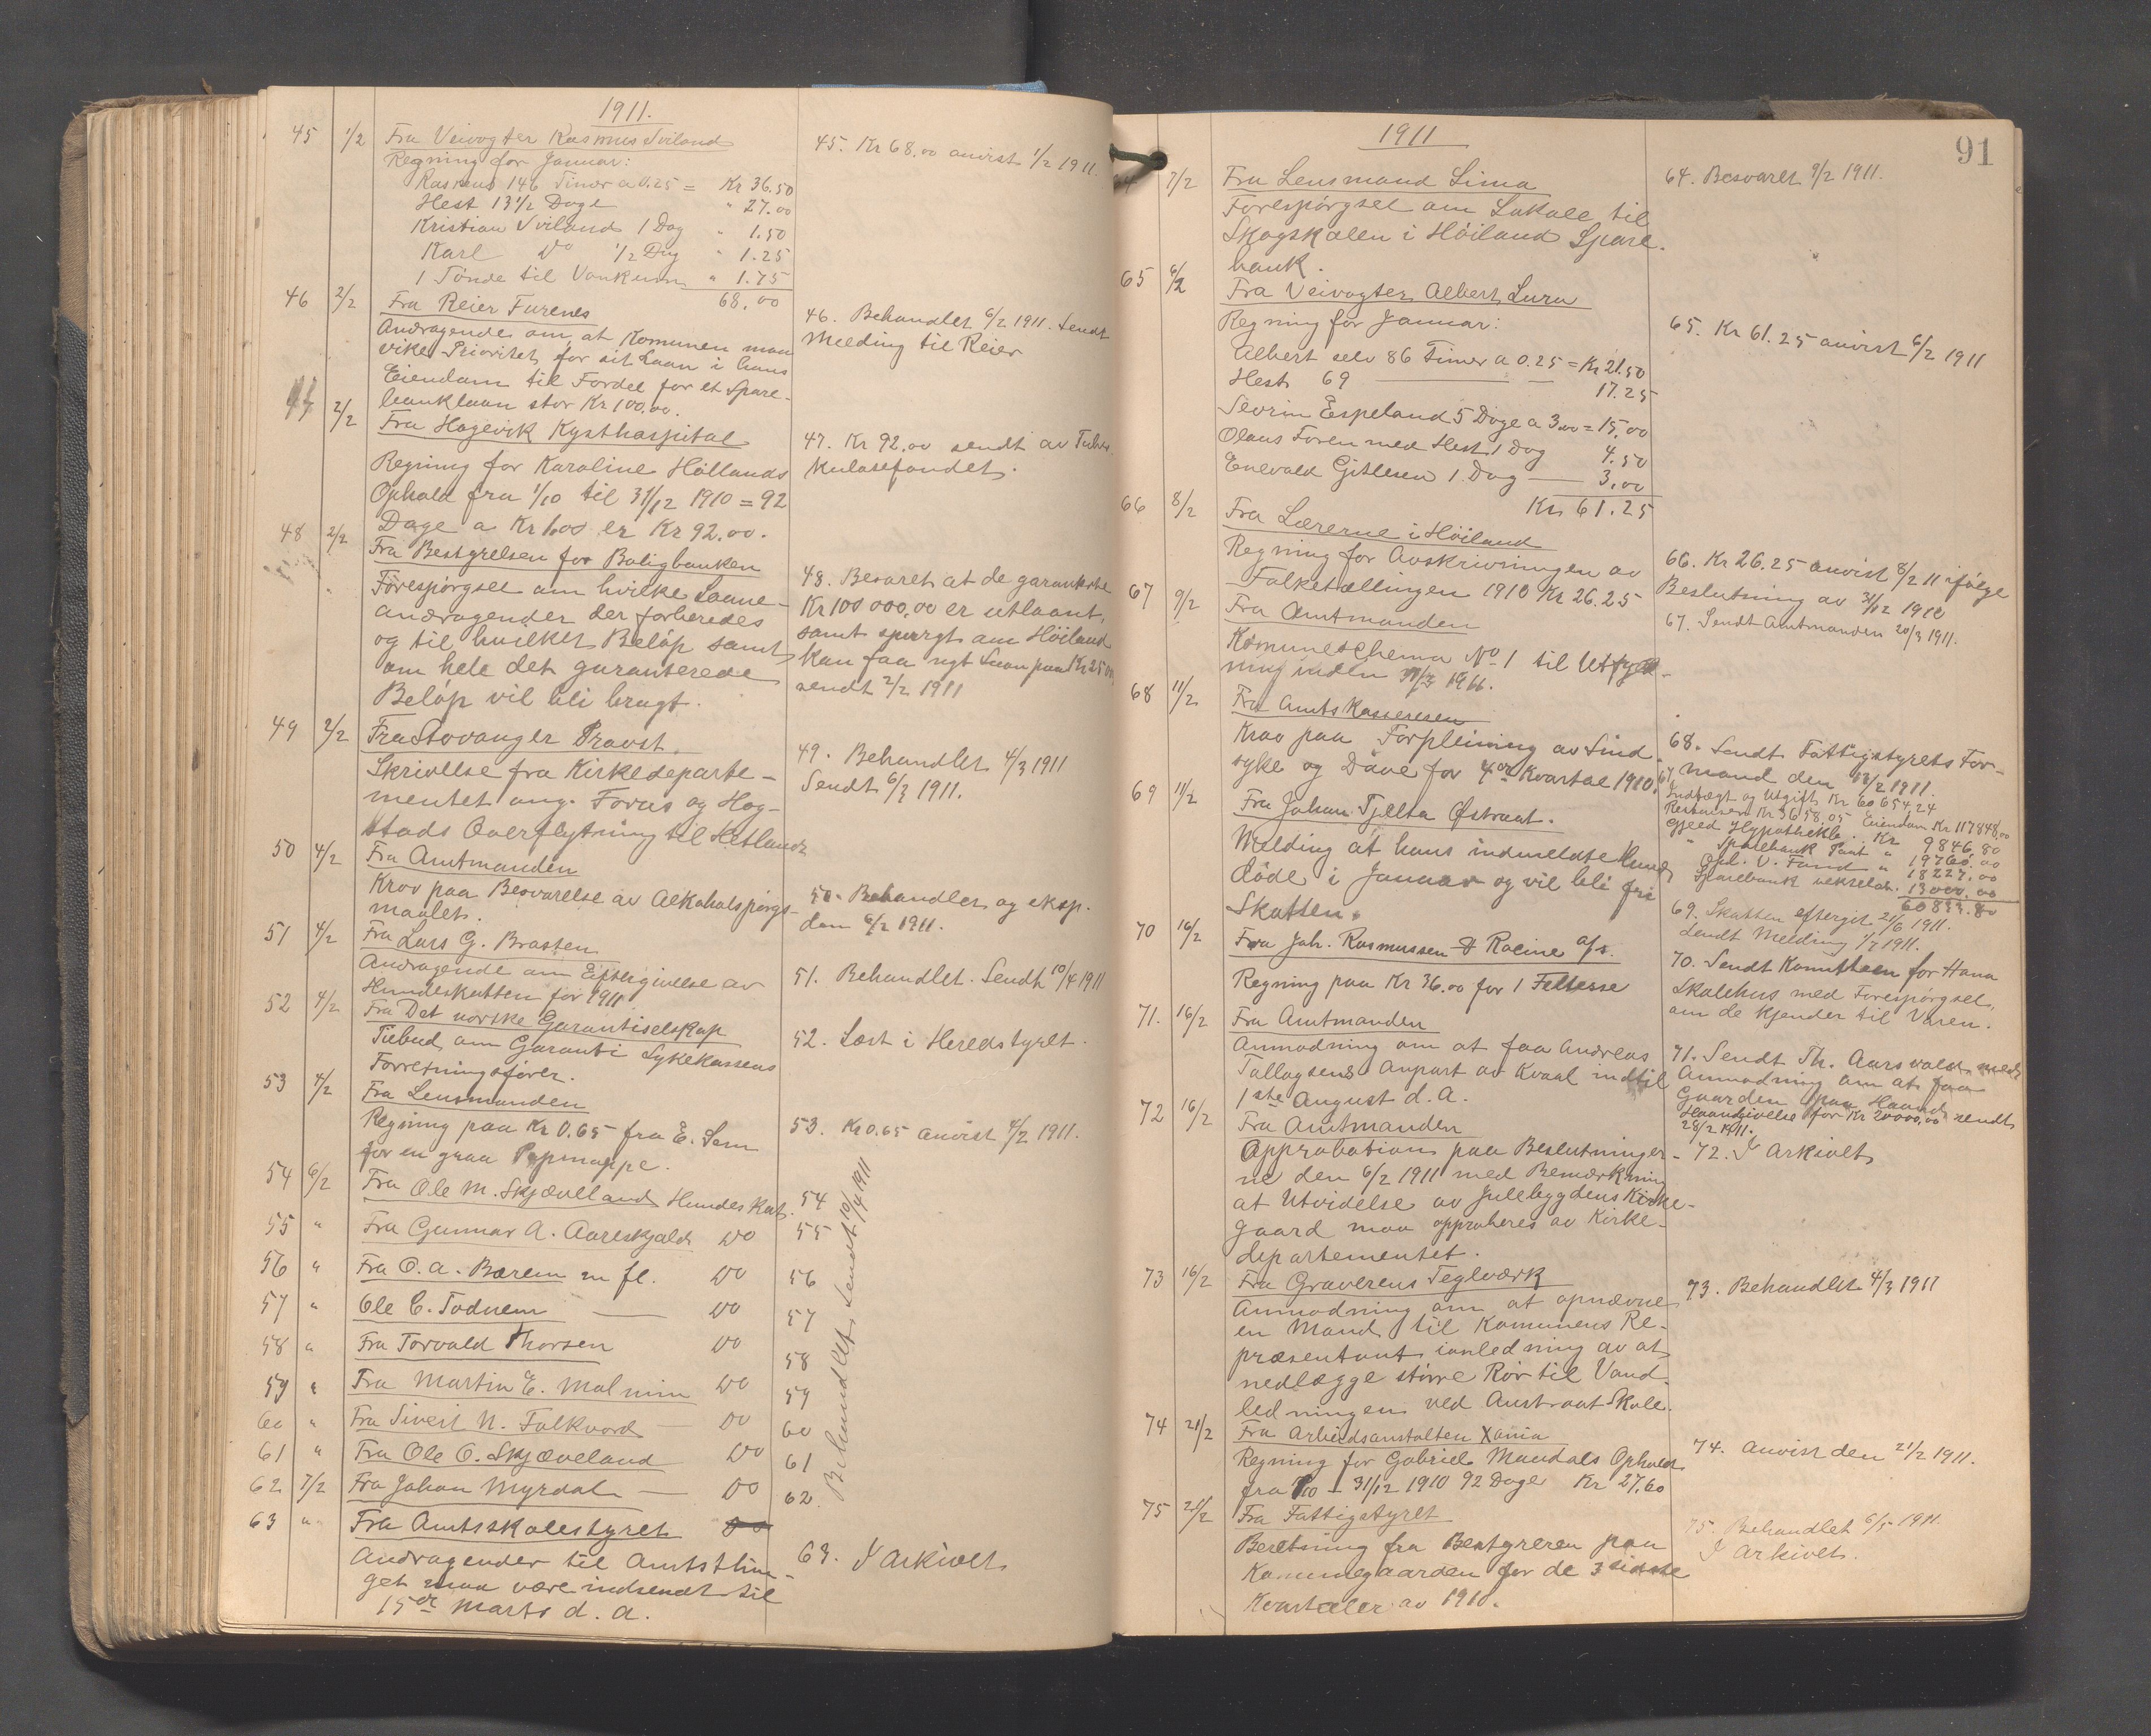 1911.
45 1/2 Fra Veivogter Rasmus Sviland
Regning for Januar:
Rasmus 146 Timer a 0.25 = Kr 36.50
Hest 13 1/2 Dage " 27.00
Kristian Sviland 1 Dag " 1.50
Karl Do 1/2 Dag " 1.25
1 Tønde til " 1.75
68.00
45. Kr 68.00 anvist 1/2 1911.
46 2/2 Fra Reier Furenes
Andragende om, at Komunen maa
vike Prioritet for sit Laan i hans
Eiendom til Fordel for et Spare-
banklaan stor Kr 100.00.
46. Behandlet 6/2 1911. Sendt
Melding til Reier
47 2/2 Fra Hagevik Kysthospital
Regning for Karoline Høllands
Ophold fra 1/10 til 31/12 1910 = 92
Dage a Kr 1.00 er Kr 92.00.
47. Kr 92.00 sendt av Tuber-
kulosefondet.
48 2/2 Fra Bestyrelsen for Boligbanken
Forespørgsel om hvilke Laane-
andragender der forberedes
og til hvilket Beløp samt
om hele det garanterede
Beløp vil bli brugt.
48. Besvaret at de garanterte
Kr 100 000,00 er utlaant,
samt spurgt om Høiland
kan faa nyt Laan paa Kr 25 00
sendt 2/2 1911
49 2/2 Fra Stavanger Provst.
Skrivelse fra Kirkedeparte-
mentet ang. Forus og Hog-
stads Overflytning til Hetland
49. Behandlet 4/3 1911
Sendt 6/3 1911.
50 4/2 Fra Amtmanden
Krav paa Besvarelse av Alkoholspørgs-
maalet.
50. Behandlet og eksp.
den 6/2 1911.
51 4/2 Fra Lars G. Brasten
Andragende om Eftergivelse av
Hundeskatten for 1911
51. Behandlet. Sendt 10/4 1911
52 4/2 Fra Det norske Garantiselskap
Tilbud om Garanti Sykekassens
Forretningsfører.
52. Læst i Heredstyret.
53 4/2 Fra Lensmanden
Regning paa Kr 0.65 fra E. Sem
for en graa Papmappe.
53. Kr 0.65 anvist 4/2 1911.
54 6/2 Fra Ole M. Skjævelland Hundeskat. 54
55 " Fra Gunnar A. Aareskjold Do 55
56 " Fra O. A. Bærem m fl. Do 56
57 " Ole C. Todnem — Do 57
58 " Fra Torvald Thorsen Do 58
59 " Fra Martin E. Malmin Do 59
60 " Fra Sivert N. Folkvord — Do 60
61 " Fra Ole O. Skjæveland Do 61
62 7/2 Fra Johan Myrdal — Do 62.
Behandlet Sendt 10/4 1911
63 " Fra Amtsskolestyret Do
Andragender til Amtsthin-
get maa være indsendt til
15de Marts d. A.
63. I Arkivet
1911
91
7/2 Fra Lensmand Lima
Forespørgsel om Lokale til
Skogskolen i Høiland Spare-
bank.
64. Besvaret 9/2 1911.
65 6/2 Fra Veivogter Albert Lura
Regning for Januar:
Albert selv 86 Timer a 0.25 = Kr 21.50
Hest 69 — — 17.25
Sevrin Espeland 5 Dage a 3.00 = 15,00
Olaus Foren med Hest 1 Dag 4.50
Enevald Gitlesen 1 Dag — 3,00
Kr 61.25
65. Kr 61.25 anvist 6/2 1911
66 8/2 Fra Lærerne i Høiland
Regning for Avskrivningen av
Folketællingen 1910 Kr 26.25
66. Kr 26.25 anvist 8/2 11 ifølge
Beslutning av 31/12 1910
67 9/2 Fra Amtmanden
Komuneschema No 1 til Utfyld-
ning inden 31/3 1911.
67. Sendt Amtmanden 20/3 1911.
68 11/2 Fra Amtskassereren
Krav paa Forpleining av Sind-
syke og Døve for 4de Kvartal 1910.
68. Sendt Fattigstyrets For-
mand den 13/2 1911.
67. Indtægt og Utgift Kr 60654.24
Restancer Kr 3658,05 Eiendom Kr 117848,00
Gjeld Hypothekb. Kr 9846.80
" Sparebank Pant " 19760.00
Opl. V. Fond " 18227.00
Sparebank veksel " 13000.00
60833.80
69 11/2 Fra Johan Tjelta Østraat.
Melding at hans indmeldte Hund
døde i Januar og vil bli fri
Skatten.
69. Skatten eftergit 21/6 1911.
Sendt Melding 1/7 1911.
70 16/2 Fra Joh. Rasmussen & Racine A/s.
Regning paa Kr 36.00 for 1 Feltesse
70. Sendt Komiteen for Hana
Skolehus med Forespørgsel,
om de kjender til Varen.
71. 16/2 Fra Amtmanden
Anmodning om at faa Andreas
Tallagsens Anpart av Kvaal indtil
1ste August d. A.
71. Sendt Th. Aarsvold med
Anmodning om at faa
Gaarden paa Haand
Haandgivelse for Kr 20000,00 sendt
28/2 1911.
72 16/2 Fra Amtmanden
Approbation paa Beslutninger-
ne den 6/2 1911 med Bemærkning
at Utvidelse av Julebygdens Kirke-
gaard maa approberes av Kirke-
departementet.
72. I Arkivet
73 16/2 Fra Graverens Teglværk
Anmodning om at opnævne
en Mand til Komunens Re-
præsentant ianledning av at
nedlægge større Rør til Vand-
ledningen ved Austraat Skole.
73. Behandlet 4/3 1911
74 21/2 Fra Arbeidsanstalten Xania
Regning for Gabriel Mandals Ophold
fra 1/10 – 31/12 1910 92 Dage Kr 27.60
74. Anvist den 21/2 1911.
75 21/2 Fra Fattigstyret
Beretning fra Bestyreren paa
Komunegaarden for de 3 sidste
Kvartaler av 1910.
75. Behandlet 6/5 1911.
I Arkivet.